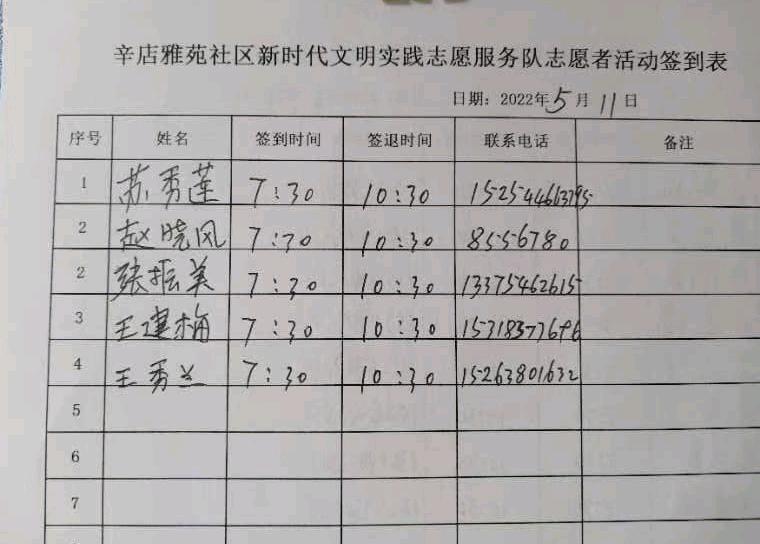 辛店雅苑社区新时代文明实践志愿服务队志愿者活动签到表
日期：2022年5月11日
序号 姓名 签到时间 签退时间 联系电话 备注
1 苏秀莲 7:30 10:30
2 赵晓风 7:30 10:30 8556780
2 张振美 7:30 10:30 13375462615
3 王建梅 7:30 10:30 15318377696
4 王秀兰 7:30 10:30 15263801632
5
6
7